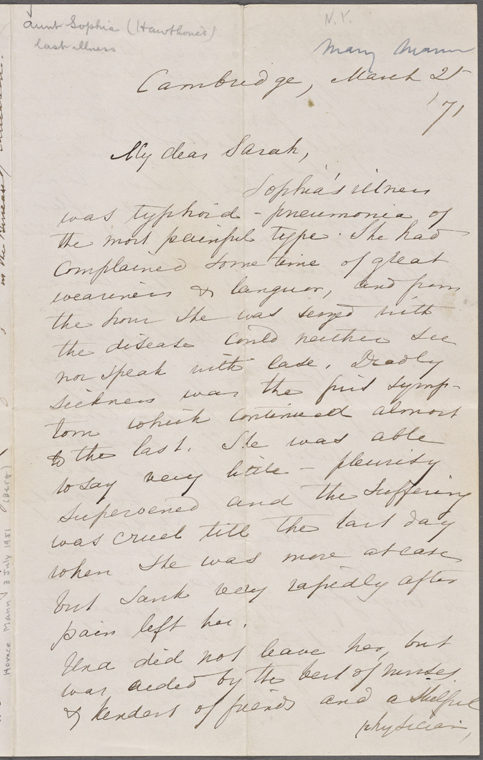 aunt Sophia (Hawthorne's)
last illness
N.Y.
Mary Mann
Cambridge, March 21
'71
My dear Sarah,
Sophia's illness
was typhoid-pneumonia of
the most painful type. She had
complained some time of great
weariness & languor, and from
the hour she was seized with
the disease could neither see
nor speak with ease. Deadly
sickness was the first symp-
tom which continued almost
to the last. She was able
to say very little - pleurisy
supervened and the suffering
was cruel till the last day
when she was more at ease
but sank very rapidly after
pain left her.
Una did not leave her, but
was aided by the best of nurses
& tenderest of friends and a skilful
physician,
Horace Mann 3 July 1951